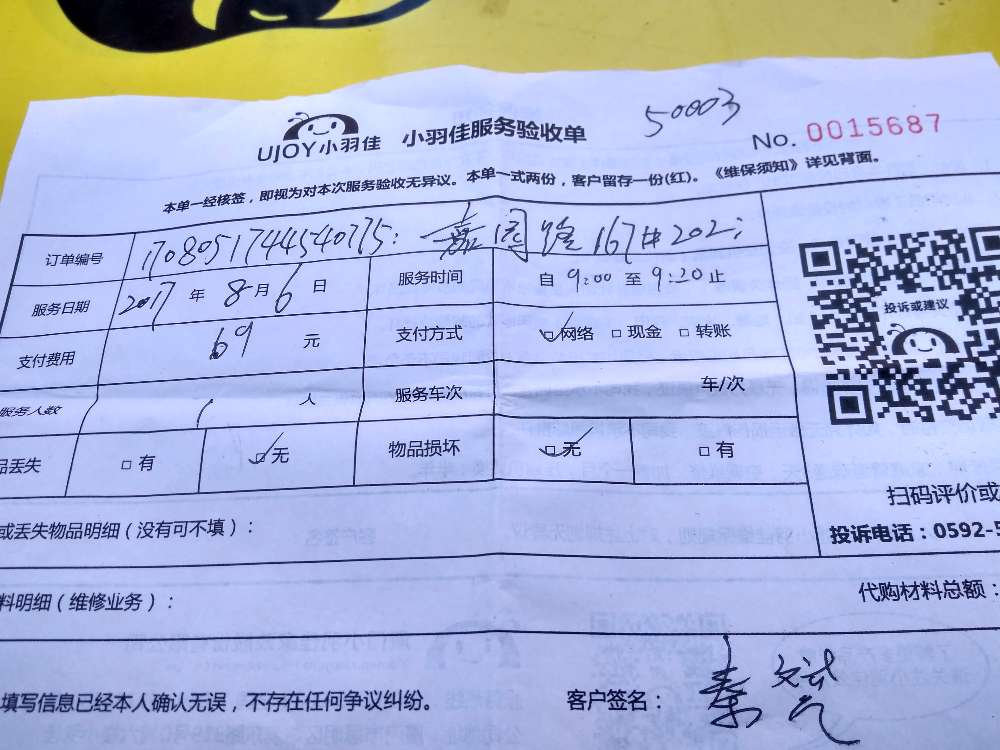 50003
UJOY小羽佳 小羽佳服务验收单
No. 0015687
本单一经核签，即视为对本次服务验收无异议。本单一式两份，客户留存一份(红)。《维保须知》详见背面。
订单编号 1708051744540775: 嘉园路 167#202;
服务日期 2017 年 8 月 6 日 服务时间 自 9:00 至 9:20 止
支付费用 69 元 支付方式 ☑网络 □现金 □转账
服务人数 1 人 服务车次 车/次
品丢失 □有 ☑无 物品损坏 ☑无 □有
投诉或建议
扫码评价或
投诉电话：0592-5
或丢失物品明细（没有可不填）：
料明细（维修业务）：
代购材料总额：
填写信息已经本人确认无误，不存在任何争议纠纷。
客户签名： 秦